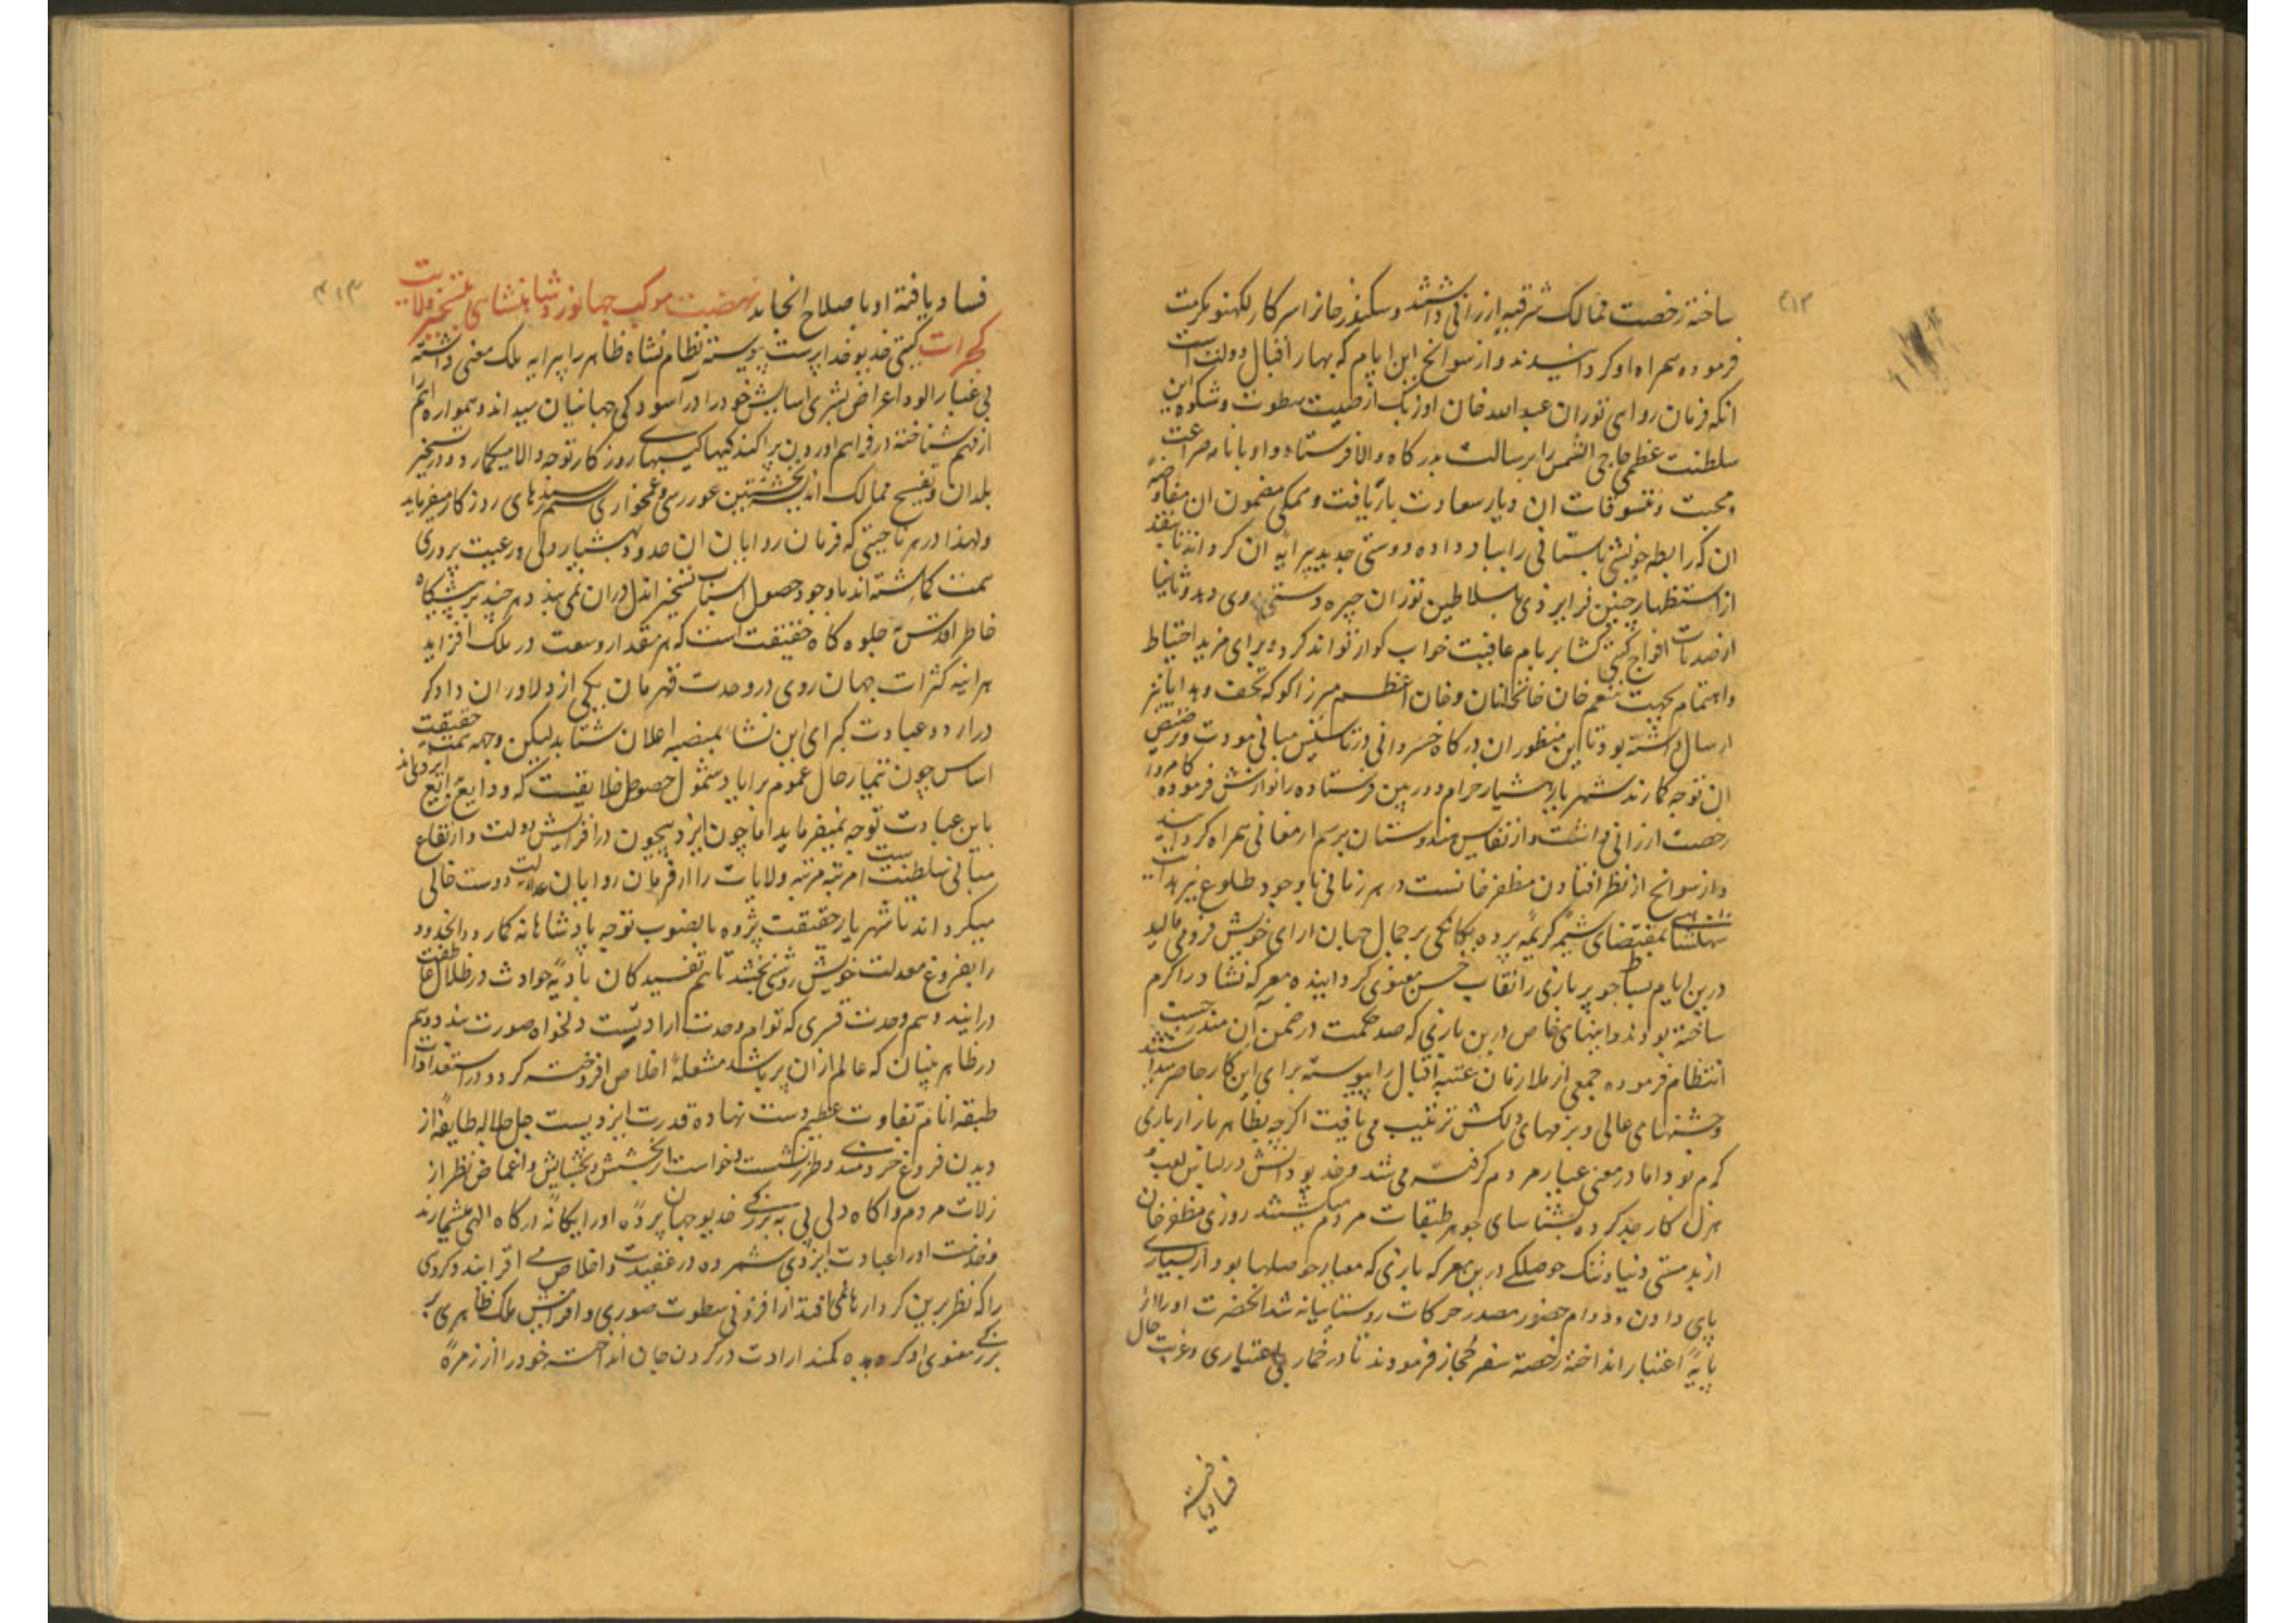 ۴۱۳
ساخته رخصت ممالک شرقیه ارزانی داشتند و سکندرخانرا سرکار لکهنو مکرمت
فرموده همراه او گردانیدند و از سوانح این ایام که بهار اقبال دولت است
انکه فرمان روای توران عبدالله خان اوزبک از صیت سطوت و شکوه این
سلطنت عظمی حاجی التمس را برسالت بدرگاه والا فرستاد و او با نامه ضراعت
و محبت و تنسوقات ان دیار سعادت باریافت و همگی مضمون ان مفاوضه
ان که رابطه خویشی باستانی را بیاد داده دوستی جدید پیرایه ان گرداند تا بقد
از استظهار چنین فرایزدی با سلاطین توران چیره دستی روی دهد و ثانیا
از صدمات افواج گیتی گشا بر بام عافیت خواب گوارا تواند کرد و برای مزید احتیاط
و اهتمام بجهت منعم خان خانخانان و خان اعظم میرزا کوکه تحف و هدایا نیز
ارسال داشته بود تا این منظوران درگاه خسروانی در تاسیس مبانی مودت و ترصیص
ان توجه گمارند شهریار هشیار خرام دوربین فرستاده را نوازش فرموده کامروا
رخصت ارزانی داشت و از نفایس هندوستان برسم ارمغانی همراه گردانید
و از سوانح از نظر افتادن مظفرخانست در هر زمانی با وجود طلوع نیر هدایت
شاهنشاهی بمقتضای شیمه کریمه پرده بیگانگی بر جمال جهان ارای خویش فرو می مالید
درین ایام بساط چوپر بازی را نقاب حسن معنوی گردانیده معرکه نشاط را گرم
ساخته بودند و اینهای خاص درین بازی که صد حکمت در ضمن آن مندرجست
انتظام فرموده جمعی از ملازمان عتبه اقبال را پیوسته برای این کار حاضر میداشتند
و جشنهای عالی و بزمهای دلکش ترتیب می یافت اگرچه بظاهر بازار بازی
گرم بود اما در معنی عیار مردم گرفته می شد و خدیو دانش در لباس لعب و
هزل کار جد کرده شناسای جوهر طبقات مردم میگشتند روزی مظفرخان
از بدمستی دنیا و تنگ حوصلگی درین معرکه بازی که معیار حوصلها بود از بسیاری
پای دادن و دوام حضور مصدر حرکات روستاییانه شد انحضرت او را از
پایه اعتبار انداخته رخصت سفر حجاز فرمودند تا در خمار بی اعتباری و غربت حال
فساد یافته
۴۱۴
فساد یافته او باصلاح انجامد نهضت موکب جهانورد شاهنشاهی بتسخیر ولایت
گجرات گیتی خدیو خداپرست پیوسته نظام نشاه ظاهر را پیرایه ملک معنی داشته
بی غبارالود اعراض بشری اسایش خود را در آسودگی جهانیان میداند و همواره اهم را
از مهم شناخته در فراهم اوردن پراکندگیهای روزگار توجه والا میگمارد و در تسخیر
بلدان و تفسیح ممالک اندیشه نخستین غوررسی و غمخواری ستم رسیدهای روزگار میفرماید
و لهذا در هر ناحیتی که فرمان روایان ان حدود بهشیاردلی و رعیت پروری
همت گماشته اند با وجود حصول اسباب تسخیر اندل دران نمی بندد و هر چند برپیشگاه
خاطر اقدس که جلوه گاه حقیقت است که هر مقدار وسعت در ملک افزاید
هراینه کثرات جهان روی در وحدت قهرمان یکی از دلاوران دادگر
درارد و عبادت کبرای این نشا بمنصه اعلان شتابد لیکن وجهه همت حقیقت
اساس چون تیمار حال عموم برایا و شمول خصوص خلایقست که ودایع بدایع ایزدی اند
باین عبادت توجه نمیفرماید اما چون ایزد بیچون در افزایش دولت و ارتفاع
مبانی سلطنت است مرتبه مرتبه ولایات را از فرمان روایان عدالت دوست خالی
میگرداند تا شهریار حقیقت پژوه بالضروت توجه پادشاهانه گمارد و انحدود
را بفروغ معدلت خویش روشنی بخشد تا هم تفسیدگان بادیه حوادث در ظلال عاطفت
درایند و هم وحدت قسری که توام وحدت ارادیست دلخواه صورت بندد و هم
در ظاهر بینان که عالم از ان پر باشد مشعله اخلاص افروخته گردد در استعدادات
طبقه انام تفاوت عظیم دست نهاده قدرت ایزدیست جل جلاله طایفه از
دیدن فروغ خردمندی و طرز نشست و خواست و بخشش و بخشایش و اغماض نظر از
زلات مردم و اگاه دلی پی به بزرگی خدیو جهان برده او را یگانه درگاه الهی میشمارند
و خدمت او را عبادت ایزدی شمرده در عقیدت و اخلاص می افزایند و گروهی
را که نظر برین کردار نامی افتد از افزونی سطوت صوری و افزایش ملک ظاهری پی
بزرگی معنوی او کرده بدیده کمند ارادت در گردن جان انداخته خود را از زمره